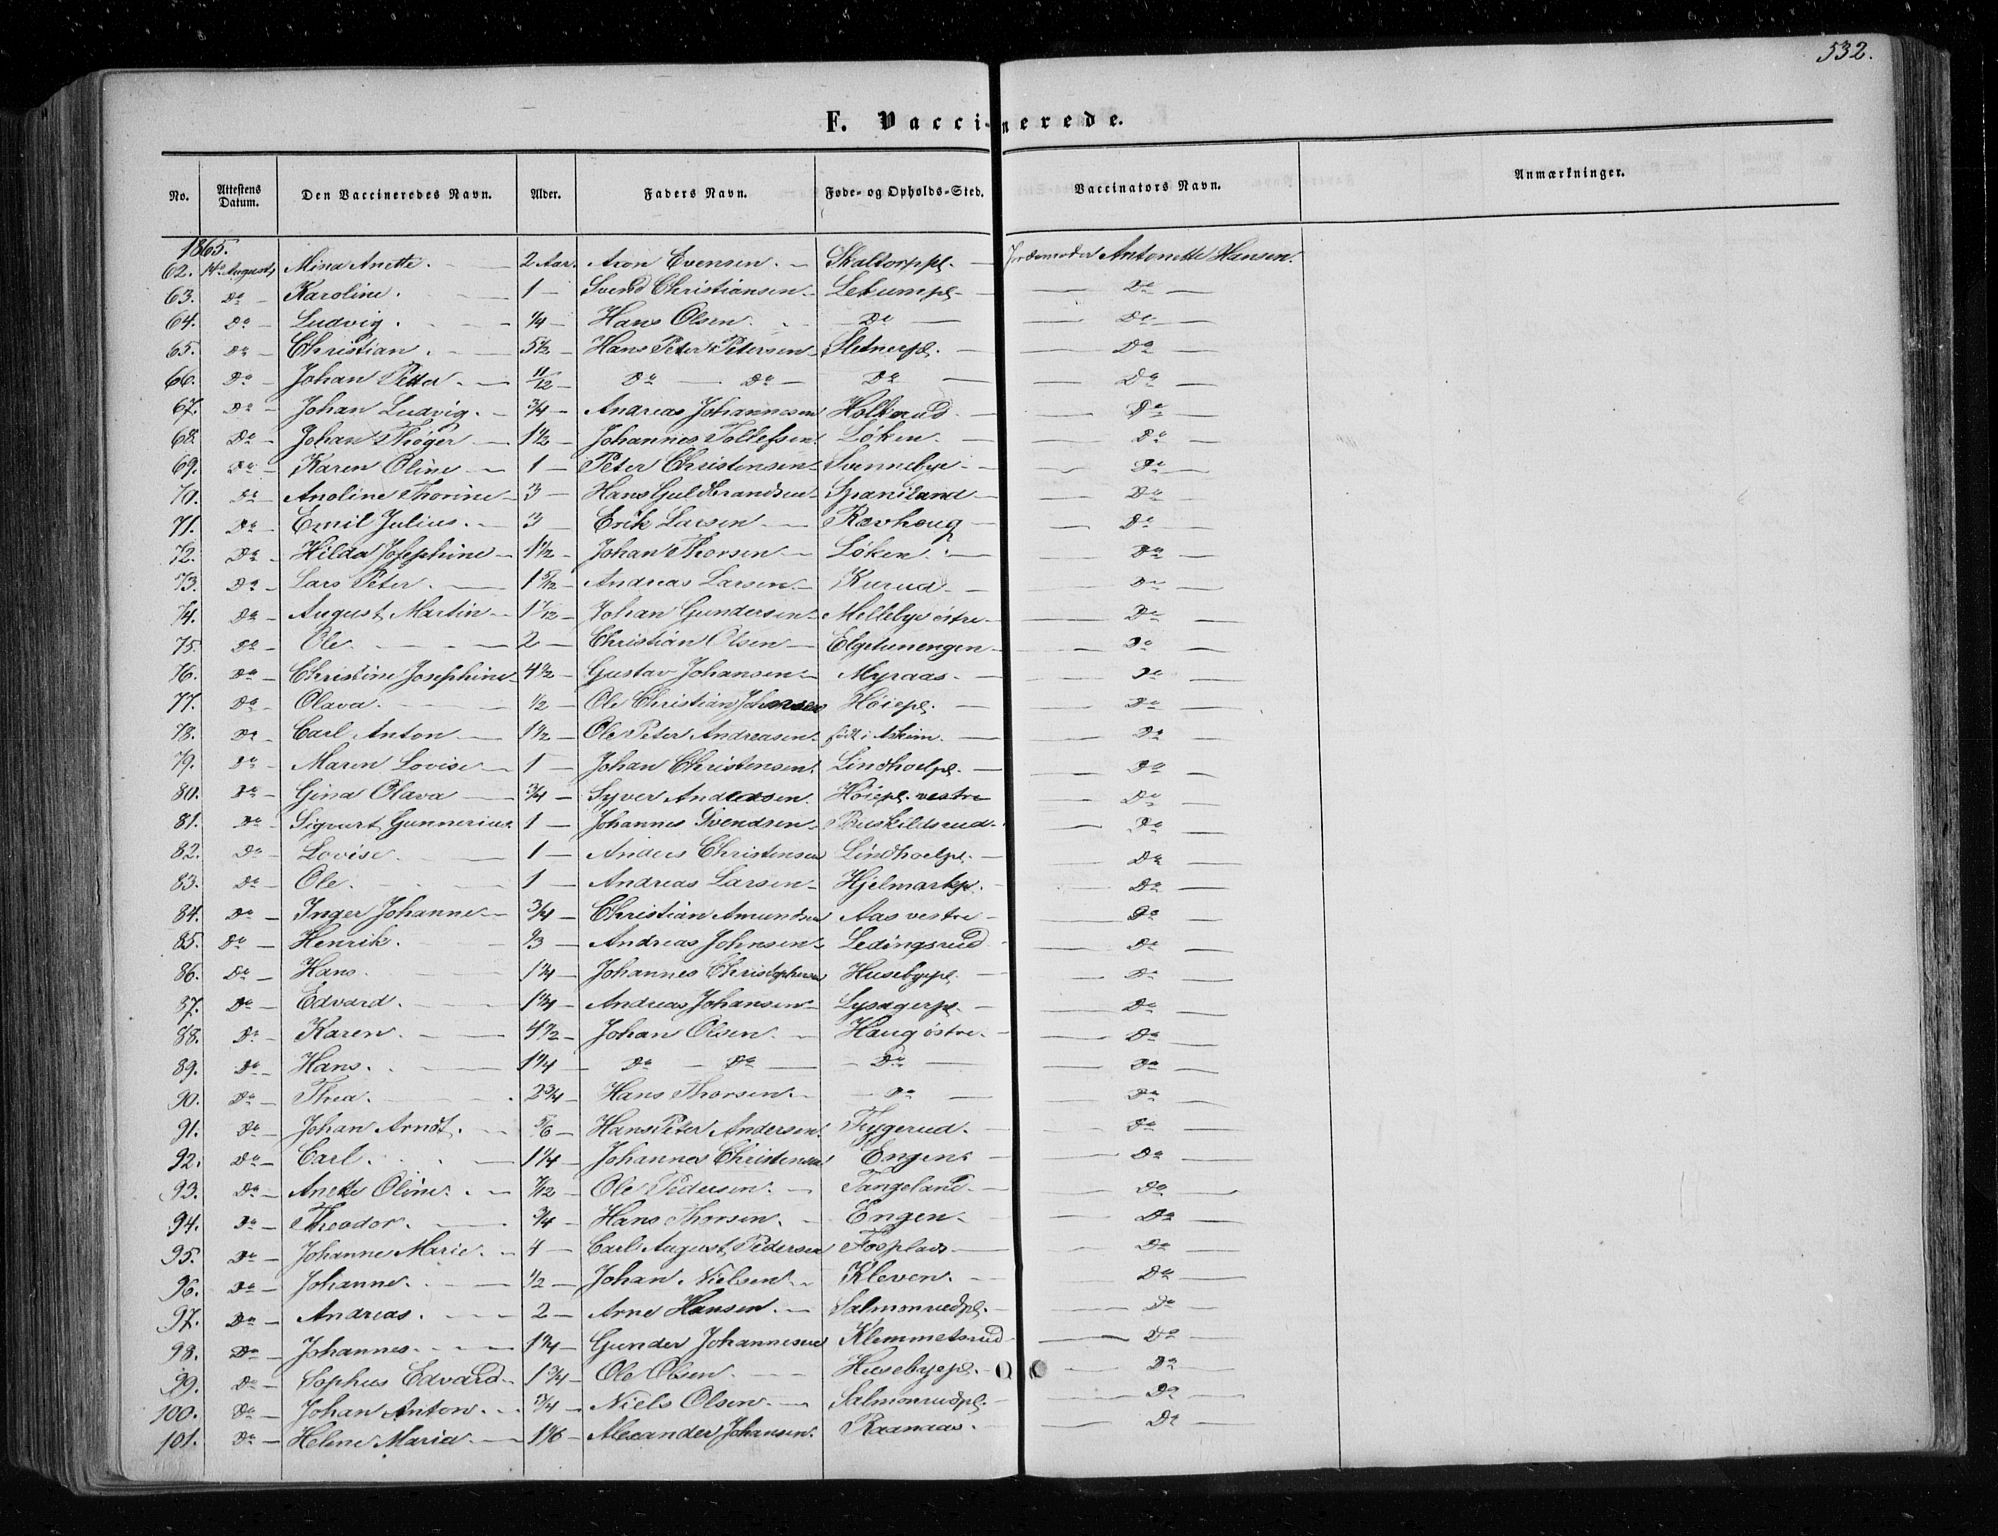 532.
F. Vaccinerede.
No. Attestens Datum. Den Vaccineredes Navn. Alder. Faders Navn. Føde- og Opholds-Sted. Vaccinators Navn. Anmærkninger.
1865.
62. 14de August, Mina Anette. — 2 Aar. Aron Evensen. — Skaltorppl. — Jordemoder Antonette Hansen.
63. Do — Karoline. — 1 — Svend Christiansen — Lekumpl. — Do —
64. Do — Ludvig. — 1/4 — Hans Olsen. — Do — Do —
65. Do — Christian. — 5 1/2 — Hans Peter Petersen — Sletnerpl. — Do —
66. Do — Johan Petter. — 11/12 — Do — Do — Do — Do —
67. Do — Johan Ludvig. — 3/4 — Andreas Johannesen Holknud. — Do —
68. Do — Johan Thøger — 1 1/2 — Johannes Tollefsen. Løken. — Do —
69. Do — Karen Oline — 1 — Peter Christensen — Svennebye — Do —
70. Do — Anoline Thorine — 3 — Hans Guldbrandsen — Spansland — Do —
71. Do — Emil Julius. — 3 — Erik Larsen — Rævhoug — Do —
72. Do — Hilda Josephine — 1 1/2 — Johan Thorsen — Løken. — Do —
73. Do — Lars Peter. — 1 5/12 — Andreas Larsen. — Kurud — Do —
74. Do — August Martin — 1 7/12 — Johan Gundersen — Mellebye østre — Do —
75. Do — Ole. — 2 — Christian Olsen — Elgetunengen — Do —
76. Do — Christine Josephine — 4 1/2 — Gustav Johansen — Myraas. — Do —
77. Do — Olava. — 1/2 — Ole Christian Johansen Høiepl. — Do —
78. Do — Carl Anton — 1 1/2 — Ole Peter Andreasen — født i Askim. — Do —
79. Do — Maren Lovise — 1 — Johan Christensen. Lindhoelpl. — Do —
80. Do — Gina Olava — 3/4 — Syver Andersen. Høiepl. vestre — Do —
81. Do — Sigvart Gunnerius. 1 — Johannes Svendsen — Buskildsrud. — Do —
82. Do — Lovise. — 1 — Anders Christensen Lindhoelpl. — Do —
83. Do — Ole. — 1 — Andreas Larsen — Hjelmarkpl. — Do —
84. Do — Inger Johanne — 3/4 — Christian Amundsen Aas vestre — Do —
85. Do — Henrik. — 2/3 — Andreas Johnsen — Ledingsrud — Do —
86. Do — Hans. — 1 3/4 — Johannes Christophersen Husebyepl. — Do —
87. Do — Edvard. — 1 3/4 — Andreas Johansen — Lysagerpl. — Do —
88. Do — Karen — 4 1/2 — Johan Olsen — Haug østre — Do —
89. Do — Hans. — 1 1/4 — Do — Do — Do — Do —
90. Do — Thea. — 2 3/4 — Hans Thorsen. — Do — Do —
91. Do — Johan Arndt. — 5/6 — Hans Peter Andersen. Fygerud. — Do —
92. Do — Carl. — 1 1/4 — Johannes Christensen Engen. — Do —
93. Do — Anette Oline. — 7/12 — Ole Pedersen. — Tangeland. — Do —
94. Do — Theodor. — 3/4 — Hans Thorsen. — Engen. — Do —
95. Do — Johanne Marie. — 4 — Carl August Pedersen Fosplads — Do —
96. Do — Johanne. — 1/2 — Johan Nielsen. — Kleven. — Do —
97. Do — Andreas. — 2 — Arne Hansen. — Salmonrudpl. — Do —
98. Do — Johannes. — 1 3/4 — Gunder Johannesen Klemmetsrud — Do —
99. Do — Sophus Edvard — 1 3/4 — Ole Olsen. — Husebyepl. — Do —
100. Do — Johan Anton. — 3/4 — Niels Olsen. — Salmonrudpl. — Do —
101. Do — Helene Maria — 1 1/6 — Alexander Johansen. Raanaas. — Do —